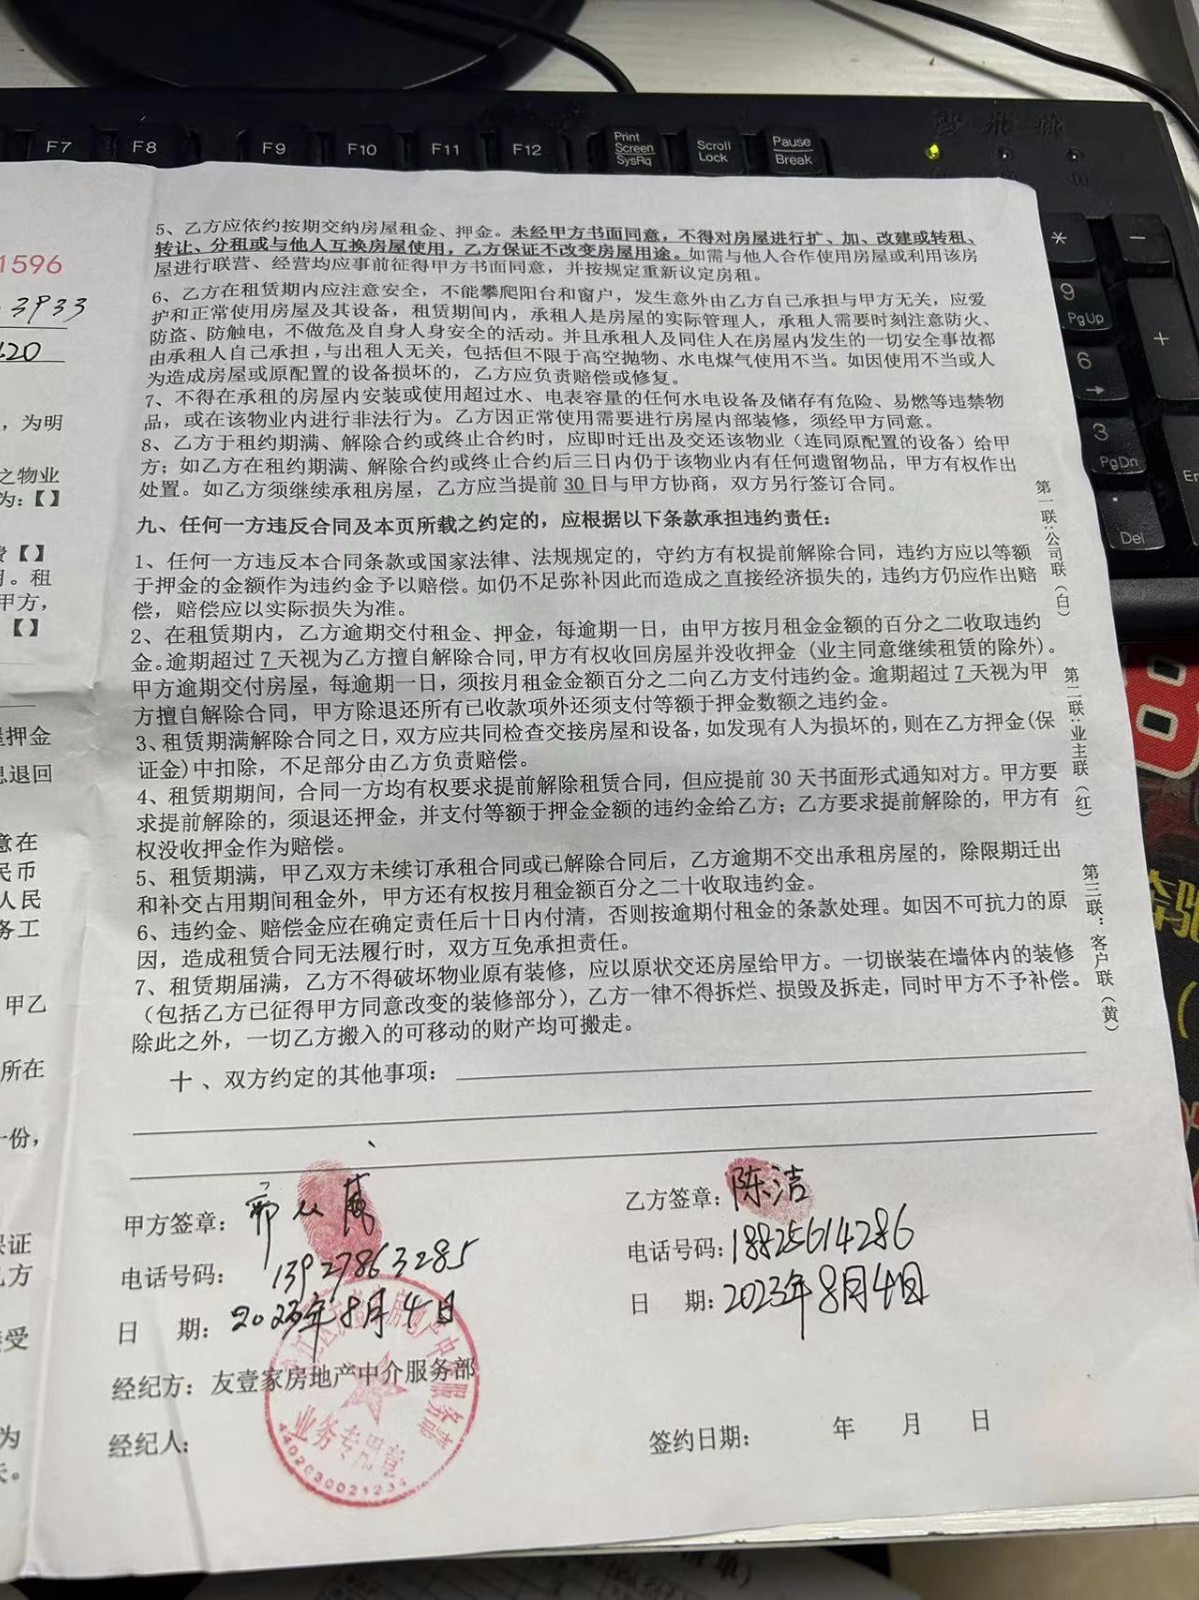 F7
F8
F9
F10
F11
F12
Print
Screen
SysRq
Scroll
Lock
Pause
Break
*
-
9
PgUp
+
6
→
3
PgDn
.
Del
1596
3933
20
，为明
之物业
为：【】
费【】
。租
甲方，
【】
押金
息退回
意在
民币
人民
务工
甲乙
所在
一份，
保证
乙方
受
为
5、乙方应依约按期交纳房屋租金、押金。未经甲方书面同意，不得对房屋进行扩、加、改建或转租、
转让、分租或与他人互换房屋使用，乙方保证不改变房屋用途。如需与他人合作使用房屋或利用该房
屋进行联营、经营均应事前征得甲方书面同意，并按规定重新议定房租。
6、乙方在租赁期内应注意安全，不能攀爬阳台和窗户，发生意外由乙方自己承担与甲方无关，应爱
护和正常使用房屋及其设备，租赁期间内，承租人是房屋的实际管理人，承租人需要时刻注意防火、
防盗、防触电，不做危及自身人身安全的活动。并且承租人及同住人在房屋内发生的一切安全事故都
由承租人自己承担，与出租人无关，包括但不限于高空抛物、水电煤气使用不当。如因使用不当或人
为造成房屋或原配置的设备损坏的，乙方应负责赔偿或修复。
7、不得在承租的房屋内安装或使用超过水、电表容量的任何水电设备及储存有危险、易燃等违禁物
品，或在该物业内进行非法行为。乙方因正常使用需要进行房屋内部装修，须经甲方同意。
8、乙方于租约期满、解除合约或终止合约时，应即时迁出及交还该物业（连同原配置的设备）给甲
方；如乙方在租约期满、解除合约或终止合约后三日内仍于该物业内有任何遗留物品，甲方有权作出
处置。如乙方须继续承租房屋，乙方应当提前 30 日与甲方协商，双方另行签订合同。
九、任何一方违反合同及本页所载之约定的，应根据以下条款承担违约责任：
1、任何一方违反本合同条款或国家法律、法规规定的，守约方有权提前解除合同，违约方应以等额
于押金的金额作为违约金予以赔偿。如仍不足弥补因此而造成之直接经济损失的，违约方仍应作出赔
偿，赔偿应以实际损失为准。
2、在租赁期内，乙方逾期交付租金、押金，每逾期一日，由甲方按月租金金额的百分之二收取违约
金。逾期超过 7 天视为乙方擅自解除合同，甲方有权收回房屋并没收押金（业主同意继续租赁的除外）。
甲方逾期交付房屋，每逾期一日，须按月租金金额百分之二向乙方支付违约金。逾期超过 7 天视为甲
方擅自解除合同，甲方除退还所有已收款项外还须支付等额于押金数额之违约金。
3、租赁期满解除合同之日，双方应共同检查交接房屋和设备，如发现有人为损坏的，则在乙方押金（保
证金）中扣除，不足部分由乙方负责赔偿。
4、租赁期期间，合同一方均有权要求提前解除租赁合同，但应提前 30 天书面形式通知对方。甲方要
求提前解除的，须退还押金，并支付等额于押金金额的违约金给乙方；乙方要求提前解除的，甲方有
权没收押金作为赔偿。
5、租赁期满，甲乙双方未续订承租合同或已解除合同后，乙方逾期不交出承租房屋的，除限期迁出
和补交占用期间租金外，甲方还有权按月租金额百分之二十收取违约金。
6、违约金、赔偿金应在确定责任后十日内付清，否则按逾期付租金的条款处理。如因不可抗力的原
因，造成租赁合同无法履行时，双方互免承担责任。
7、租赁期届满，乙方不得破坏物业原有装修，应以原状交还房屋给甲方。一切嵌装在墙体内的装修
（包括乙方已征得甲方同意改变的装修部分），乙方一律不得拆烂、损毁及拆走，同时甲方不予补偿。
除此之外，一切乙方搬入的可移动的财产均可搬走。
十、双方约定的其他事项：
第一联：公司联（白）
第二联：业主联（红）
第三联：客户联（黄）
甲方签章：
电话号码：13927863285
日 期：2023年8月4日
经纪方：友壹家房地产中介服务部
经纪人：
房地产中介服务部
业务专用章
乙方签章：陈洁
电话号码：18825614286
日 期：2023年8月4日
签约日期： 年 月 日